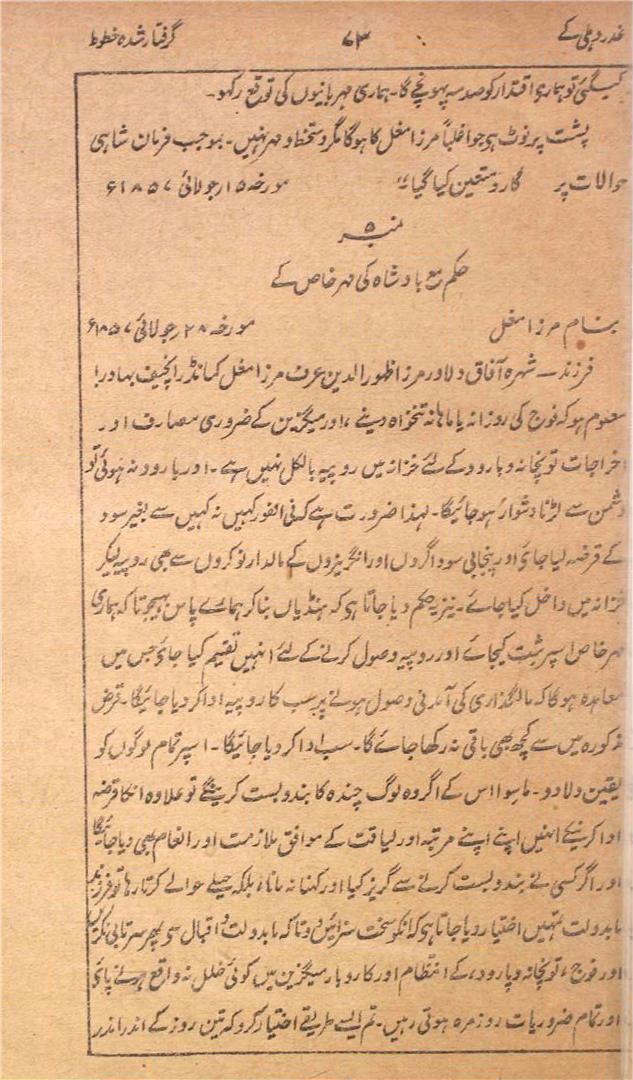 غدر دہلی کے ۷۳ گرفتار شدہ خطوط
کیگئی تو ہماری اقتدار کو صدمہ پہونچے گا۔ ہماری مہربانیوں کی توقع رکھو۔
پشت پر نوٹ ہی جو اغلباً مرزا مغل کا ہوگا مگر دستخط و مہر نہیں۔ بموجب فرمان شاہی
حوالات پر گارد متعین کیا گیا" مورخہ ۱۵ جولائی ۱۸۵۷ء
نمبر ۵
حکم مع بادشاہ کی مہر خاص کے
بنام مرزا مغل مورخہ ۲۸ جولائی ۱۸۵۷ء
فرزند — شہرہ آفاق دلاور مرزا ظہور الدین عرف مرزا مغل کمانڈر انچیف بہادر!
معلوم ہو کہ فوج کی روزانہ یا ماہانہ تنخواہ دینے، اور میگزین کے ضروری مصارف اور
اخراجات توپخانہ و بارود کے لئے خزانہ میں روپیہ بالکل نہیں ہے۔ اور بارود نہ ہوئی تو
دشمن سے لڑنا دشوار ہو جائیگا۔ لہذا ضرورت ہے کہ فی الفور کہیں نہ کہیں سے بغیر سود
کے قرضہ لیا جائے اور پنجابی سوداگروں اور انگریزوں کے مالدار نوکروں سے بھی روپیہ لیکر
خزانہ میں داخل کیا جائے۔ نیز یہ حکم دیا جاتا ہی کہ ہنڈیاں بناکر ہمارے پاس بھیجو تاکہ ہماری
مہر خاص اسپر ثبت کیجائے اور روپیہ وصول کرنے کے لئے انہیں تقسیم کیا جائے جس میں
معاہدہ ہوگا کہ مالگذاری کی آمدنی وصول ہونے پر سب کا روپیہ ادا کر دیا جائیگا۔ قرض
مذکورہ میں سے کچھ بھی باقی نہ رکھا جائے گا۔ سب ادا کر دیا جائیگا۔ اسپر تمام لوگوں کو
یقین دلا دو۔ ماسوا اس کے اگر وہ لوگ چندہ کا بندوبست کرینگے تو علاوہ انکا قرضہ
ادا کرنیکے انہیں اپنے اپنے مرتبہ اور لیاقت کے موافق ملازمت اور انعام بھی دیا جائیگا
اور اگر کسی نے بندوبست کرنے سے گریز کیا اور کہنا نہ مانا، بلکہ حیلے حوالے کرتا رہا تو فرزند
مابدولت تمہیں اختیار دیا جاتا ہی کہ انکو سخت سزائیں دو تاکہ مابدولت و اقبال سے پھر سرتابی نکریں
اور فوج، توپخانہ و بارود، کے انتظام اور کاروبار میگزین میں کوئی خلل نہ واقع ہونے پائے
اور تمام ضروریات روزمرہ ہوتی رہیں۔ تم ایسے طریقے اختیار کرو کہ تین روز کے اندر اندر